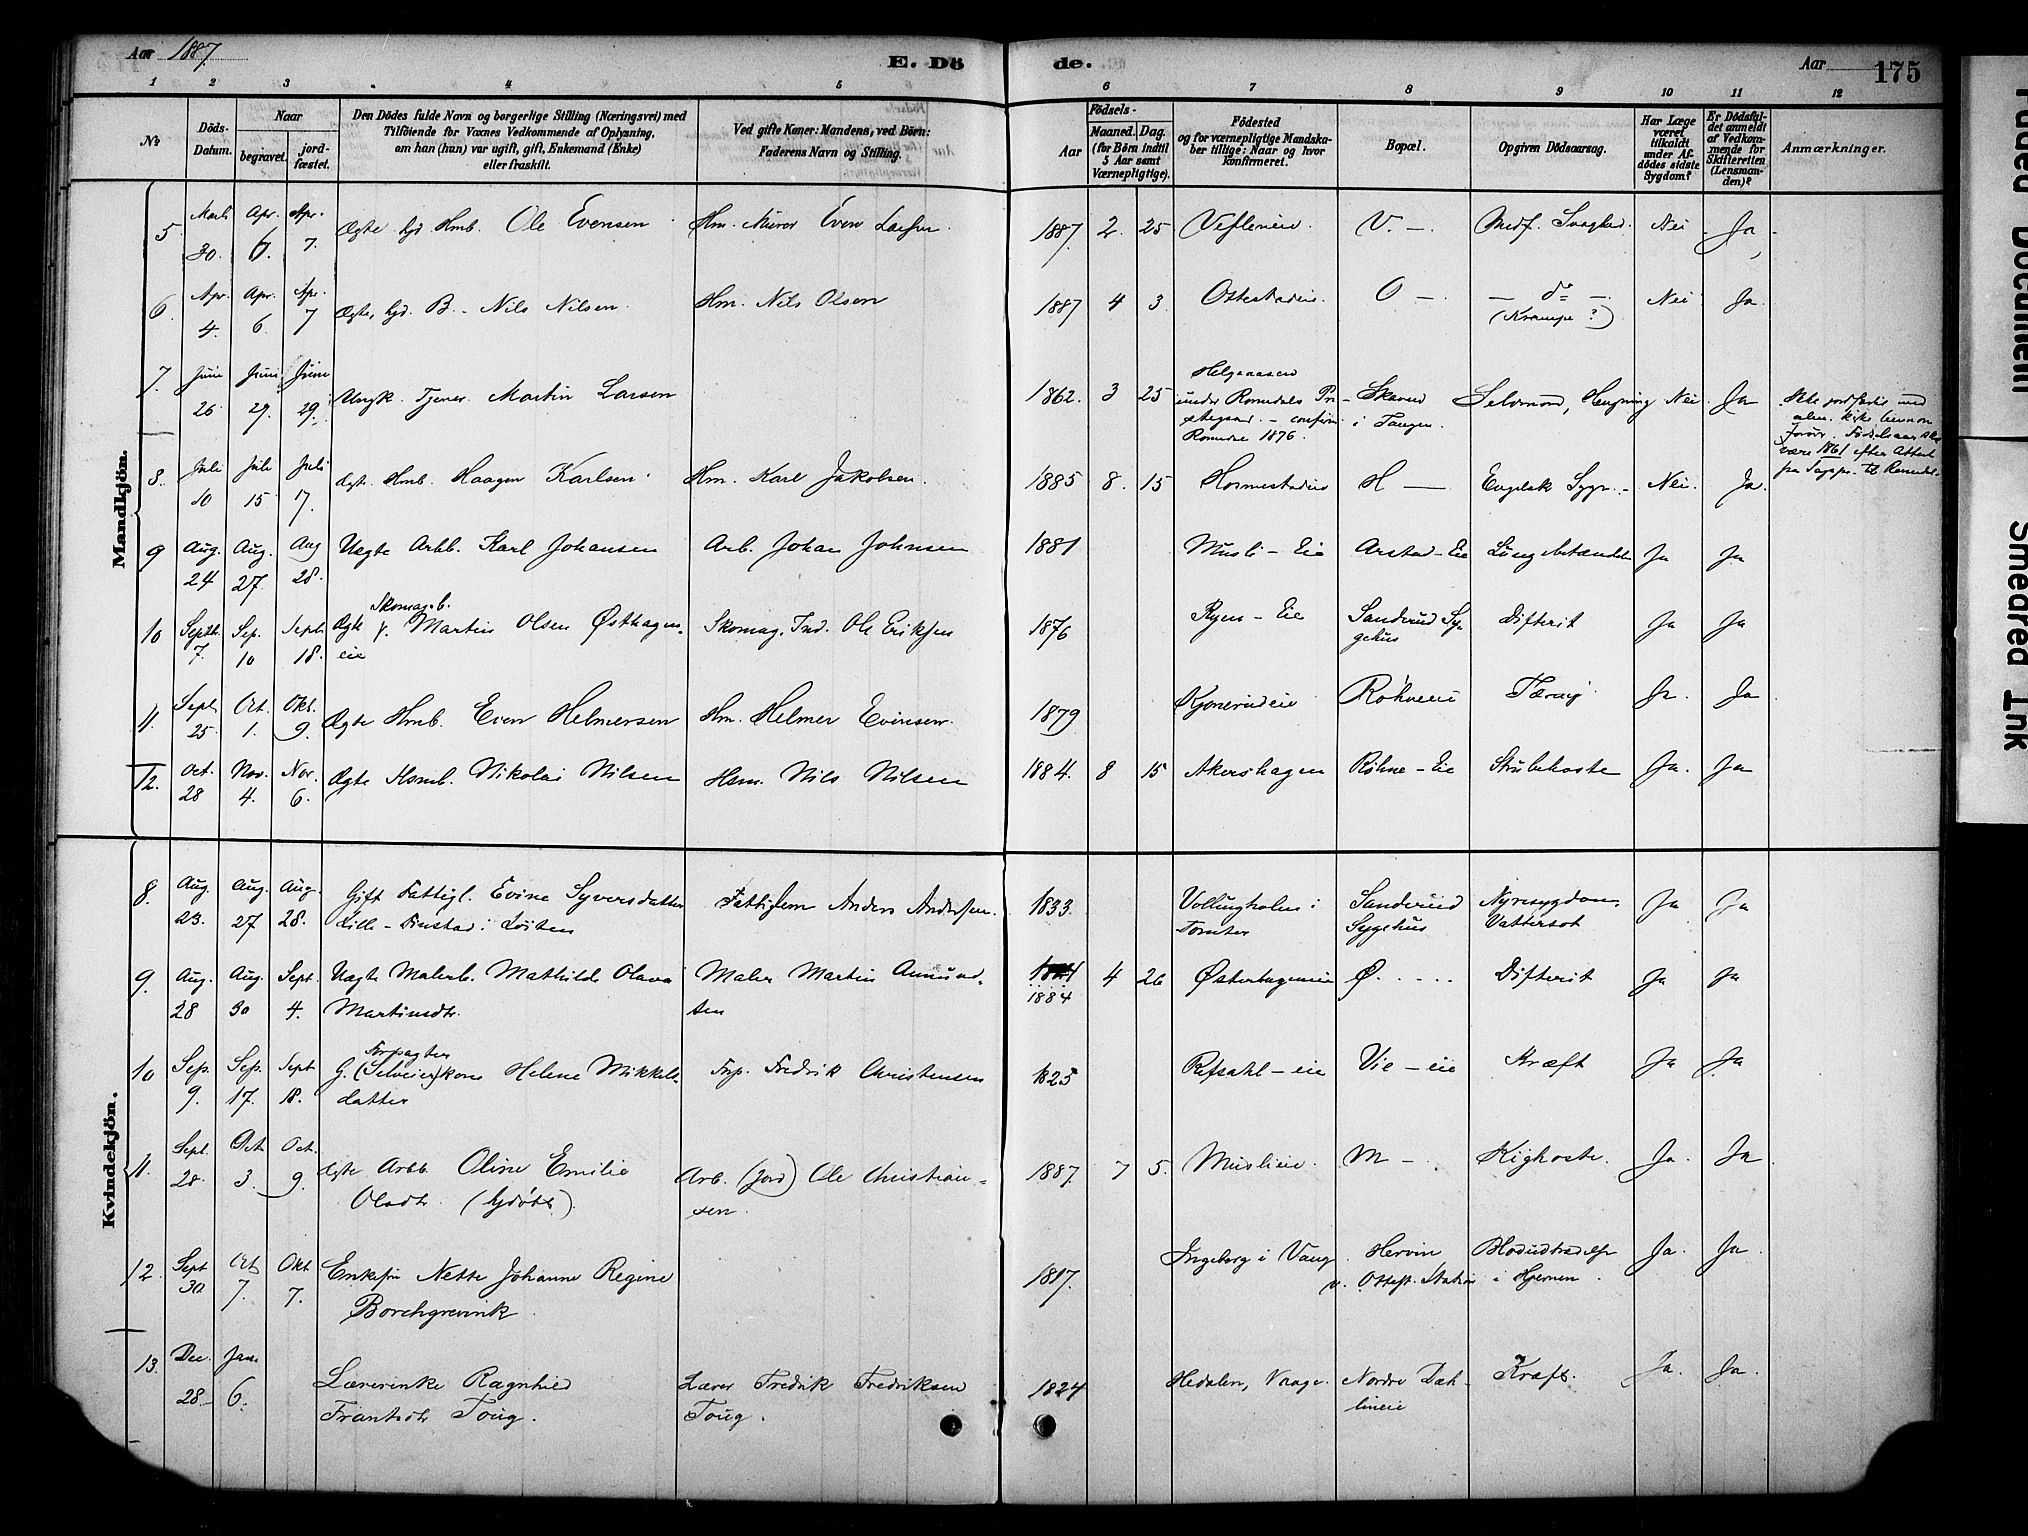 Aar 1887. E. Dö de. Aar 175
1 2 3 4 5 6 7 8 9 10 11 12
No
Döds-Datum.
Naar
begravet.
jord-fæstet.
Den Dödes fulde Navn og borgerlige Stilling (Næringsvei) med
Tilföiende for Voxnes Vedkommende af Oplysning,
om han (hun) var ugift, gift, Enkemand (Enke)
eller fraskilt.
Ved gifte Koner: Mandens, ved Börn:
Faderens Navn og Stilling.
Födsels-
Aar
Maaned. Dag.
(for Börn indtil
5 Aar samt
Værnepligtige).
Födested
og for værnepligtige Mandska-
ber tillige: Naar og hvor
konfirmeret.
Bopæl.
Opgiven Dödsaarsag.
Har Læge
været
tilkaldt
under Af-
dödes sidste
Sygdom?
Er Dödsfal-
det anmeldt
af Vedkom-
mende for
Skifteretten
(Lensman-
den)?
Anmærkninger.
Mandkjön.
5 Marts 30 Apr. 6. Apr. 7. Ægte hjd Hmb. Ole Evensen Hm. Murer Even Larsen 1887. 2. 25 V. —. Medf. Svaghed. Nei Ja
6. Apr. 4. Apr. 6. Apr. 7 Ægte, hjd. B. Nils Nilsen. Hm. Nils Olsen 1887 4 3. O —. — do —. Nei Ja.
(Krampe?)
7. Juni 26 Juni 29. Juni 29. Ungk. Tjener Martin Larsen 1862. 3 25 Helgeaasen
under Romedals Præ-
stegaard. – confirm.
Romedal 1876. i Tangen. Selvmord, Hængning Nei. Ja
Fødselsaar skal
være 1861 efter Attest
fra Sogepr. til Romedal.
8. Juli 10 Juli 15 Juli 17. Ægt. Hmb. Haagen Karlsen. Hm. Karl Jakobsen. 1885 8. 15 H — Engelsk Syge. Nei. Ja.
9 Aug. 24 Aug. 27. Aug 28. Uægte Arbb. Karl Johansen Arb. Johan Johnsen 1881 Musli – Eie Arstad–Eie Lungebetændels Ja Ja
10 Septb. 7. Sep. 10 Septb 18. Ægte Skomag.b. Martin Olsen Østhagen-
eie Skomag. Ind. Ole Eriksen 1876 Ryen – Eie Sanderud Sy-
gehus Difterit Ja Ja
11. Septb. 25 Oct. 1. Okt. 9. Ægte Hmb. Even Helmersen Hm. Helmer Evensen. 1879 Kjonerudeie Røhneeie Tæring Ja. Ja
12. Oct. 28 Nov. 4. Nov. 6. Ægte Hsmb. Nikolai Nilsen Hsm. Nils Nilsen 1884. 8 15 Akershagen Røhne–Eie Strubehoste Ja. Ja
Kvindekjön.
8. Aug. 23. Aug. 27 Aug. 28. Gift Fattigl. Evine Syversdatter
Lille–Finstad i Løiten Fattiglem Anders Andersen. 1833. Vollungholen i
Tomter Sanderud
Sygehus Nyresygdom.
Vattersot Ja Ja
9. Aug. 28 Aug. 30 Sept. 4. Uægte Malerb. Mathilde Olava
Martinsdtr. Maler Martin Amund-
sen 1884 4 26 Østerhageneie Ø. Difterit Ja Ja
10 Sep. 9. Sep. 17. Sept 18. G. Forpagter (Selveier)kone Helene Mikkels-
datter Frp. Fredrik Christensen 1825 Refsahl–eie Vie–eie Kræft Ja Ja
11. Sept. 28. Oct. 3. Oct. 9. Ægte Arbb. Oline Emilie
Olsdtr. (hjdøbt). Arb. (Jord) Ole Christian-
sen. 1887. 7 5. Muslieie. M —. Kighoste. Ja. Ja
12. Sept 30 Oct 7. Okt 7. Enkefru Nette Johanne Regine
Borchgrevink. 1817. Ingeberg i Vang. Hervin
v. Ottest. Station Blodudtrædelse
i Hjernen. Ja. Ja.
13. Dec. 28. Jan. 6. Lærerenke Ragnhild
Frantsdtr Toug. Lærer Fredrik Fredriksen
Toug. 1824 Hedalen, Vaage. Nordre Dæh-
lineie Kræft. Ja. Ja.